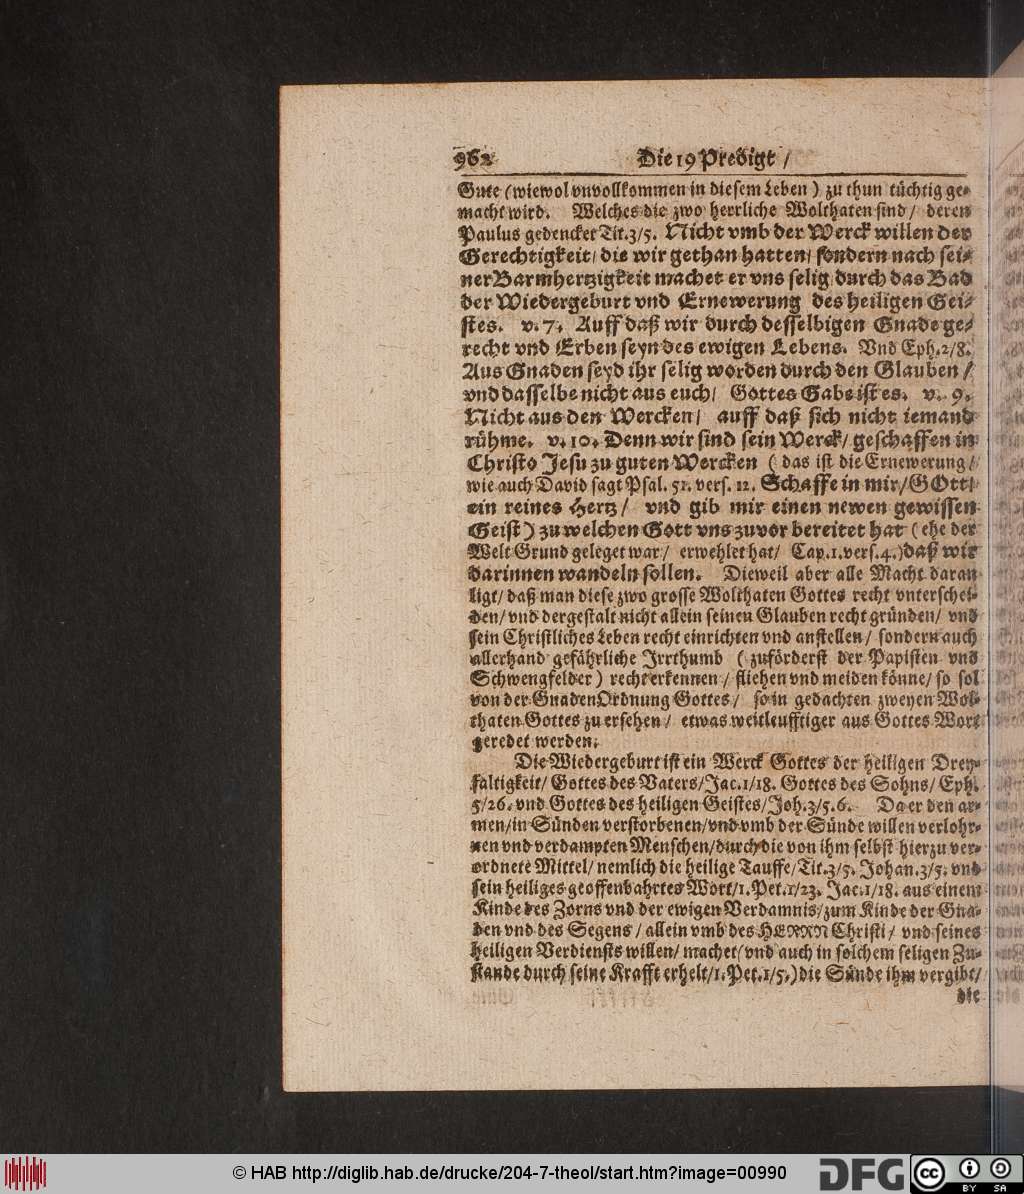 962 Die 19 Predigt /
Gute (wiewol vnvollkommen in diesem Leben) zu thun tüchtig ge-
macht wird. Welches die zwo herrliche Wolthaten sind/ deren
Paulus gedencket Tit.3/5. Nicht vmb der Werck willen der
Gerechtigkeit/ die wir gethan hatten/ sondern nach sei-
ner Barmhertzigkeit machet er vns selig durch das Bad
der Wiedergeburt vnd Ernewerung des heiligen Gei-
stes. v. 7. Auff daß wir durch desselbigen Gnade ge-
recht vnd Erben seyn des ewigen Lebens. Vnd Eph.2/8.
Aus Gnaden seyd ihr selig worden durch den Glauben/
vnd dasselbe nicht aus euch/ Gottes Gabe ist es. v. 9.
Nicht aus den Wercken/ auff daß sich nicht iemand
rühme. v. 10. Denn wir sind sein Werck/ geschaffen in
Christo Jesu zu guten Wercken (das ist die Ernewerung/
wie auch David sagt Psal. 51. vers. 12. Schaffe in mir/ GOtt/
ein reines Hertz/ vnd gib mir einen newen gewissen
Geist) zu welchen Gott vns zuvor bereitet hat (ehe der
Welt Grund geleget war/ erwehlet hat/ Cap.1.vers.4.) daß wir
darinnen wandeln sollen. Dieweil aber alle Macht daran
ligt/ daß man diese zwo grosse Wolthaten Gottes recht vnterschei-
den/ vnd dergestalt nicht allein seinen Glauben recht gründen/ vnd
sein Christliches Leben recht einrichten vnd anstellen/ sondern auch
allerhand gefährliche Irrthumb (zuförderst der Papisten vnd
Schwengfelder) recht erkennen/ fliehen vnd meiden könne/ so sol
von der GnadenOrdnung Gottes/ so in gedachten zweyen Wol-
thaten Gottes zu ersehen/ etwas weitleufftiger aus Gottes Wort
geredet werden.
Die Wiedergeburt ist ein Werck Gottes der heiligen Drey-
faltigkeit/ Gottes des Vaters/ Jac.1/18. Gottes des Sohns/ Eph.
5/26. vnd Gottes des heiligen Geistes/ Joh.3/5.6. Da er den ar-
men/ in Sünden verstorbenen/ vnd vmb der Sünde willen verlohr-
nen vnd verdampten Menschen/ durch die von ihm selbst hierzu ver-
ordnete Mittel/ nemlich die heilige Tauffe/ Tit.3/5. Johan.3/5. vnd
sein heiliges geoffenbahrtes Wort/ 1. Pet.1/23. Jac.1/18. aus einem
Kinde des Zorns vnd der ewigen Verdamnis/ zum Kinde der Gna-
den vnd des Segens/ allein vmb des HERRN Christi/ vnd seines
heiligen Verdiensts willen/ machet (vnd auch in solchem seligen Zu-
stande durch seine Krafft erhelt/ 1. Pet.1/5.) die Sünde ihm vergibt/
die
© HAB http://diglib.hab.de/drucke/204-7-theol/start.htm?image=00990 DFG cc BY SA